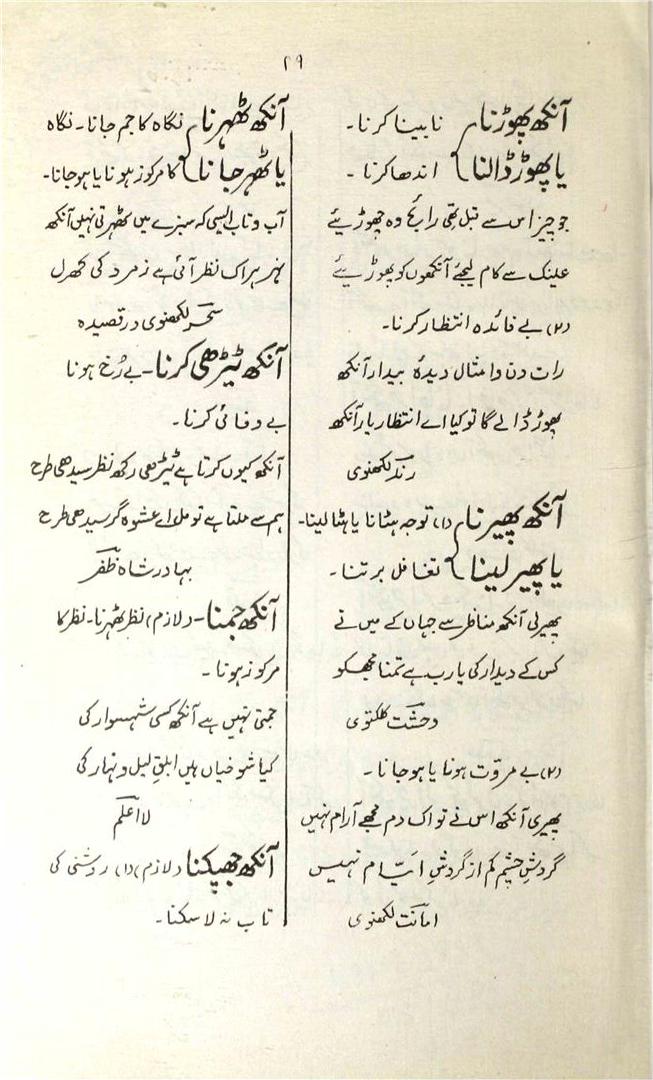 ۲۹
آنکھ پھوڑنا } نابینا کرنا۔
یا پھوڑ ڈالنا } اندھا کرنا۔
جو چیز اس سے قبل تھی رائج وہ چھوڑیئے
عینک سے کام لیجئے آنکھوں کو پھوڑیئے
(۲) بے فائدہ انتظار کرنا۔
رات دن وا مثال دیدۂ بیدار آنکھ
پھوڑ ڈالے گا تو کیا اے انتظار یار آنکھ
رند لکھنوی
آنکھ پھیرنا } (۱) توجہ ہٹانا یا ہٹا لینا۔
یا پھیر لینا } تغافل برتنا۔
پھیر لی آنکھ مناظر سے جہاں کے میں نے
کس کے دیدار کی یارب ہے تمنا مجھکو
وحشت کلکتوی
(۲) بے مروّت ہونا یا ہو جانا۔
پھیری آنکھ اس نے تو اک دم مجھے آرام نہیں
گردشِ چشم کم از گردشِ ایّام نہیں
امانت لکھنوی
آنکھ ٹھہرنا } نگاہ کا جم جانا۔ نگاہ
یا ٹھہر جانا } کا مرکوز ہونا یا ہو جانا۔
آب و تاب ایسی کہ سبزے میں ٹھہرتی نہیں آنکھ
نہر ہر اک نظر آئی ہے زمرد کی کھرل
سحر لکھنوی در قصیدہ
آنکھ ٹیڑھی کرنا۔ بے رُخ ہونا
بے وفائی کرنا۔
آنکھ کیوں کرتا ہے ٹیڑھی رکھ نظر سیدھی طرح
ہم سے ملتا ہے تو مل اے عشوہ گر سیدھی طرح
بہادر شاہ ظفر
آنکھ جمنا۔ (لازم) نظر ٹھہرنا۔ نظر کا
مرکوز ہونا۔
جمتی نہیں ہے آنکھ کسی شہسوار کی
کیا شوخیاں ہیں ابلقِ لیل و نہار کی
لااعلم
آنکھ جھپکنا (لازم) (۱) روشنی کی
تاب نہ لا سکنا۔